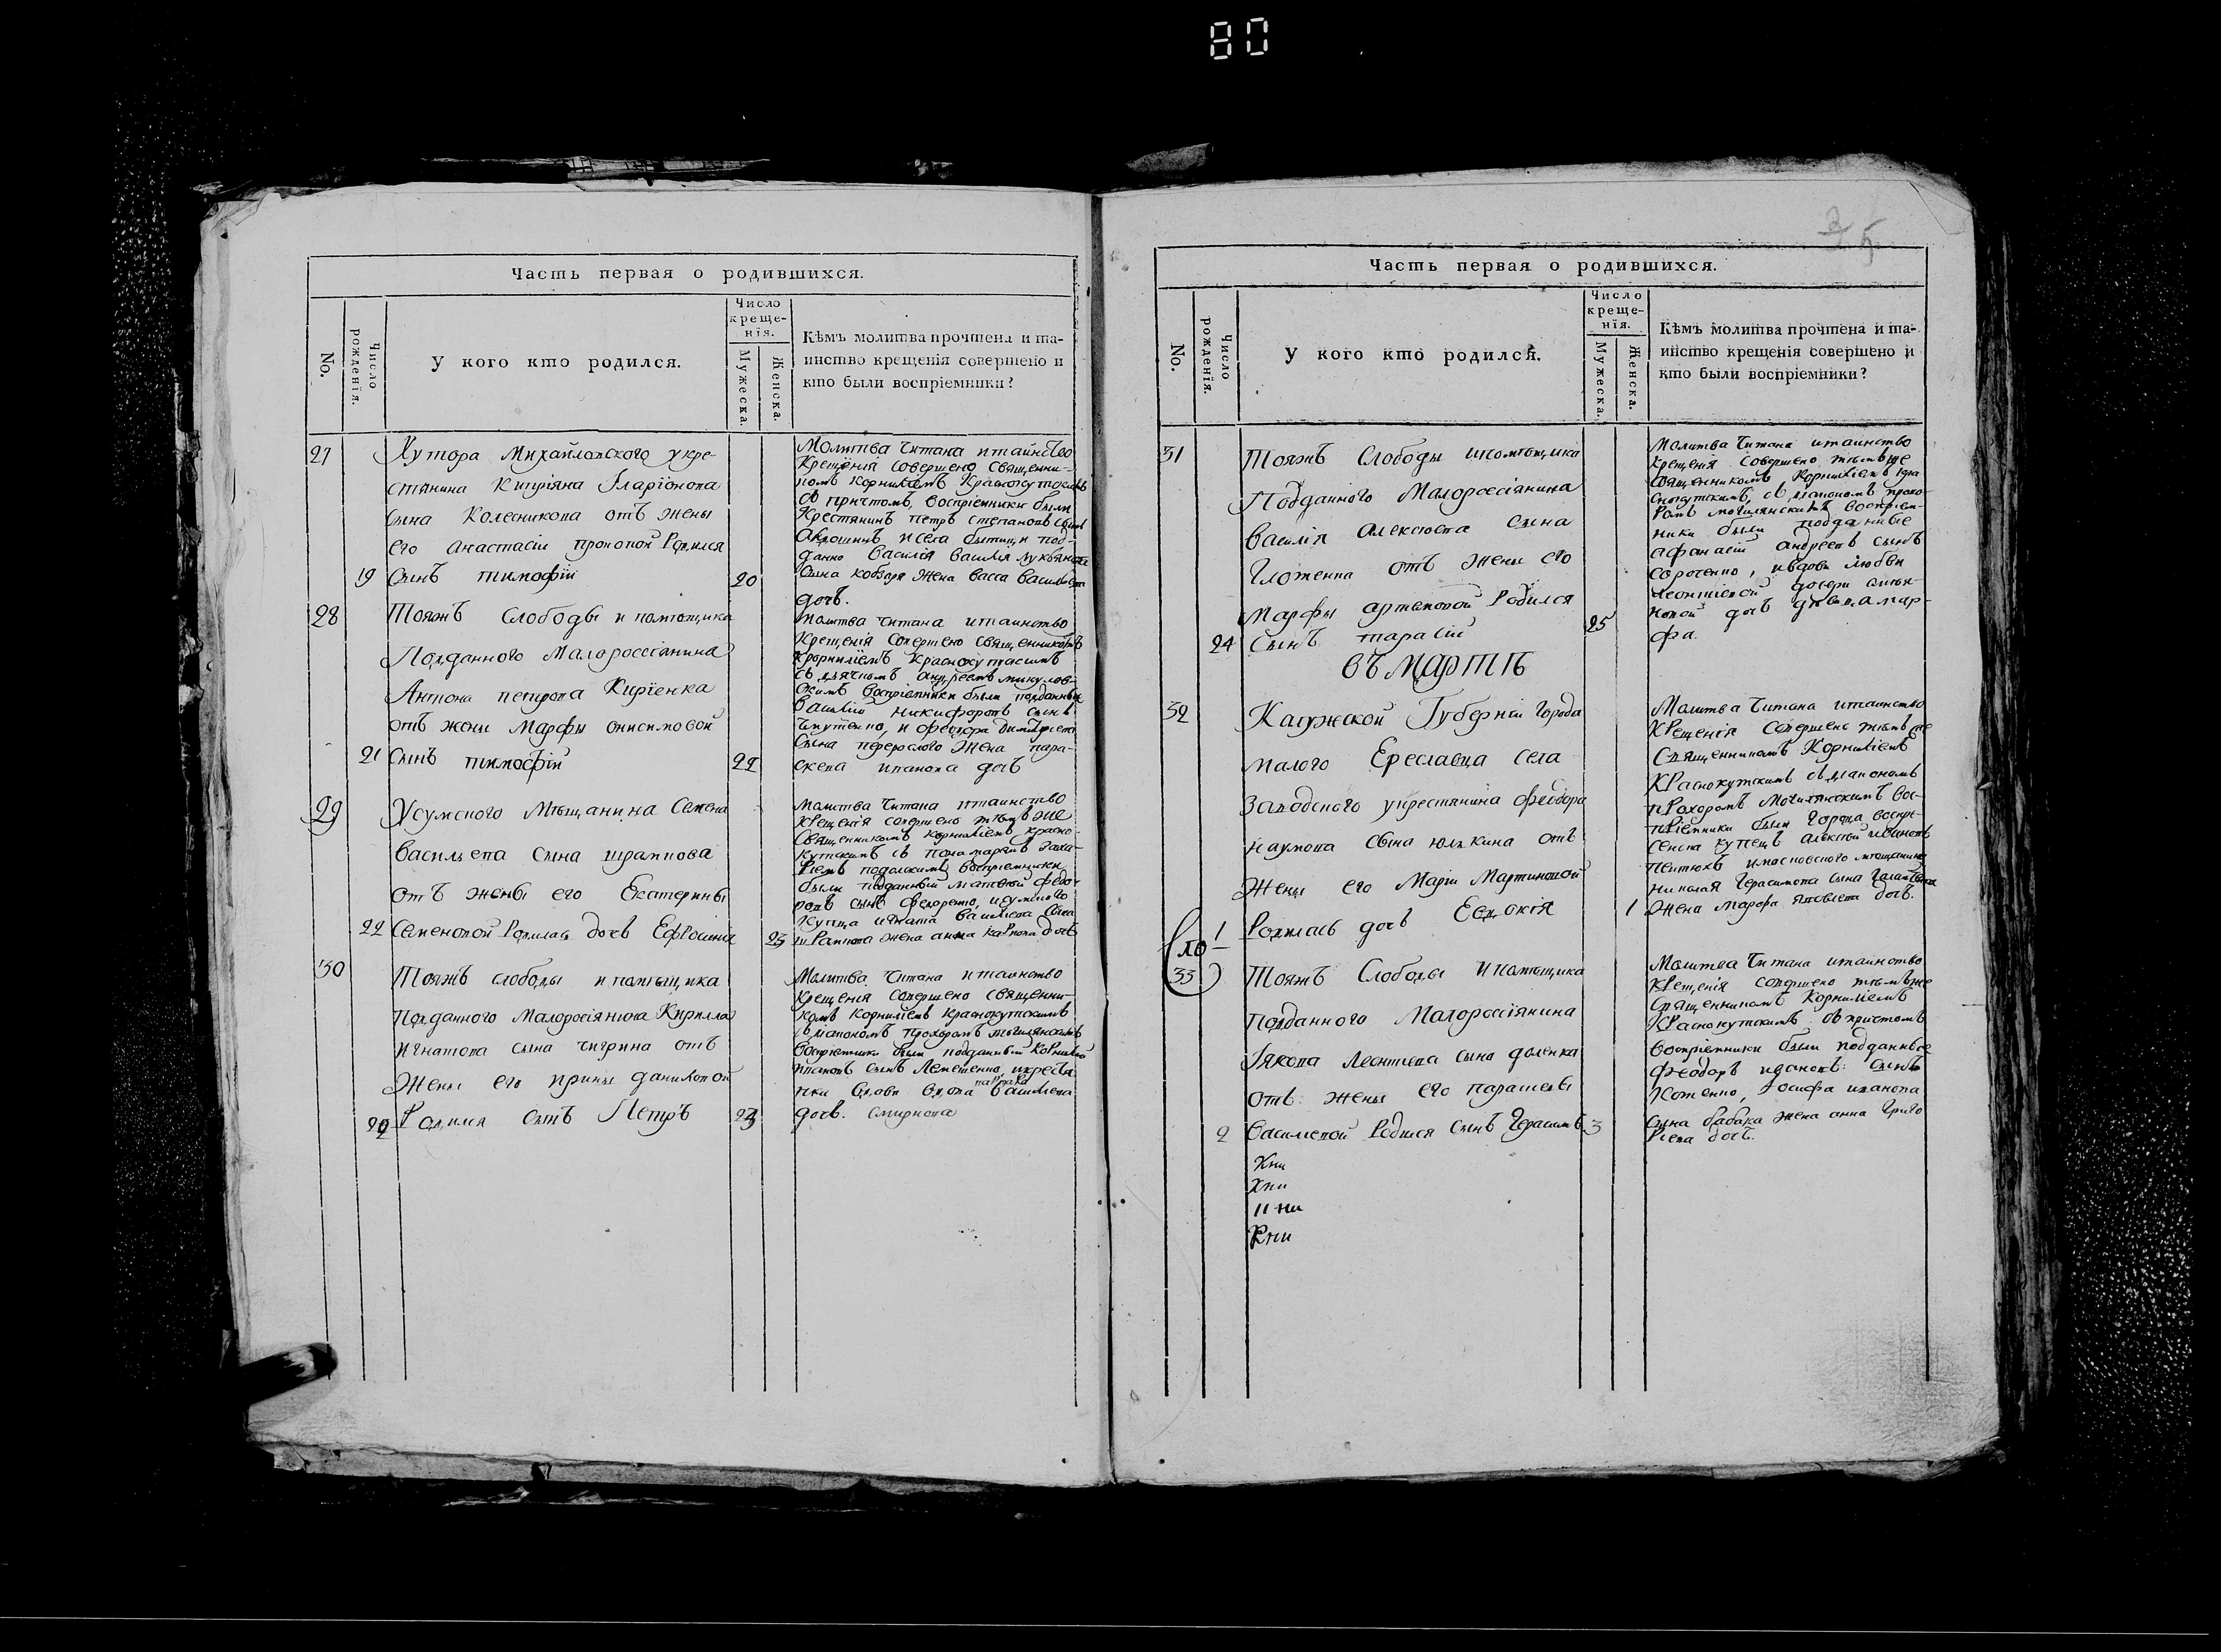 80
Часть первая о родившихся.
No.
Число рожденїя.
У кого кто родился.
Число
креще-
нїя.
Мужеска.
Женска.
Кѣмъ молитва прочтена и та-
инство крещенїя совершено и
кто были воспрїемники?
27
Хутора Михайловского укре
стянина Кипріяна Іларіонова
сына Колесникова отъ жены
его анастасіи Родился
19 Сынъ тимофій 20
Молитва читана итаинство
Крещенія совершено Священни-
комъ Корниліемъ Краснокутскимъ
Съ причтомъ, воспріемники были
Крестянинъ петръ степановъ сынъ
исела под-
данно Василія
Сына кобзаря жена васса васильева
дочь.
28
Тояжъ Слободы и помѣщика
Подданного Малороссіянина
Антона петрова Кирїенка
отъ жени Марфы онисимовой
21 Сынъ тимофій 22
Молитва читана итаинство
Крещенія совершено священникомъ
Корниліемъ Краснокутскимъ
съ дьячкомъ андреемъ
воспріемники были подданные
Василій никифоровъ сынъ
и феодора
Сына жена пара-
скева иванова дочь
29
Усумского Мѣщанина Семена
Васильева сына
отъ жены его Екатерины
22 Семеновой Родилась дочь Ефросинія 23
Молитва читана итаинство
Крещенія совершено тѣмъ же
Священникомъ корниліемъ красно-
кутскимъ съ понамаремъ заха-
ріемъ воспріемники
были подданный матвей федо-
ровъ сынъ федоренко, исумского
купца игната васильева сына
жена анна карпова дочь
30
Тояжъ слободы и помѣщика
подданного Малоросіянина Кирилла
Игнатова сына чигрина отъ
Жены его ирины даниловой
22 Родился сынъ Петръ 23
Молитва читана итаинство
Крещенія совершено священни-
комъ Корниліемъ Краснокутскимъ
съ діакономъ прохоромъ могилянскимъ
Воспріемники были подданный Корнилій
ивановъ сынъ Леметенко,
вдова васильева
дочь. смирнова
35
Часть первая о родившихся.
No.
Число рожденїя.
У кого кто родился.
Число
креще-
нїя.
Мужеска.
Женска.
Кѣмъ молитва прочтена и та-
инство крещенїя совершено и
кто были воспрїемники?
31
Тояжъ Слободы ипомѣщика
Подданного Малороссіянина
Василія алексѣева сына
отъ жени его
Марфы артемовой Родился
24 Сынъ тарасій 25
Молитва читана итаинство
крещенія совершено тѣмъ же
Священникомъ Корниліемъ кра
снокутскимъ, съ діакономъ прохо-
ромъ могилянскимъ воспріем-
ники были подданные
афанасій андреевъ сынъ
сороченко, ивдовы любви
Леонтіевой дочери
дочь дѣвка мар-
фа.
Въ Мартѣ
32
Калужской Губерніи города
малого Ереславца села
заводского укрестянина феодора
наумова сына юлкина отъ
жены его Маріи Мартиновой
1 Родилась дочь Евдокія 1
Молитва читана итаинство
Крещенія совершено тѣмъ же
Священникомъ Корниліемъ
Краснокутскимъ съ діакономъ
прохоромъ Могилянскимъ вос-
пріемники были города воскре-
сенска купецъ алексѣй ивановъ
мѣщанина
николая Герасимова сына
жена марфа яковлева дочь.
33
Тояжъ Слободы Ипомѣщика
подданного Малороссіянина
Іякова Леонтьева сына
отъ жены его парасевы
2 Васильевой Родился сынъ Герасимъ 3
Молитва читана итаинство
Крещенія совершено тѣмъ же
Священникомъ Корниліемъ
Краснокутскимъ съ причтомъ
воспріемники были подданные
Феодоръ ивановъ сынъ
Іосифа иванова
сына бабака жена анна григо
ріева дочь.